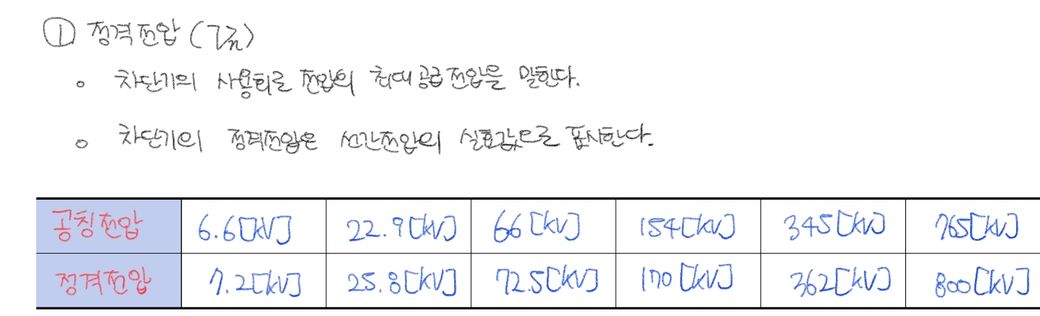 ① 정격전압 (Vn)
◦ 차단기의 사용회로 전압의 최대 공급전압을 말한다.
◦ 차단기의 정격전압은 선간전압의 실효값으로 표시한다.
공칭전압 6.6[kV] 22.9[kV] 66[kV] 154[kV] 345[kV] 765[kV]
정격전압 7.2[kV] 25.8[kV] 72.5[kV] 170[kV] 362[kV] 800[kV]